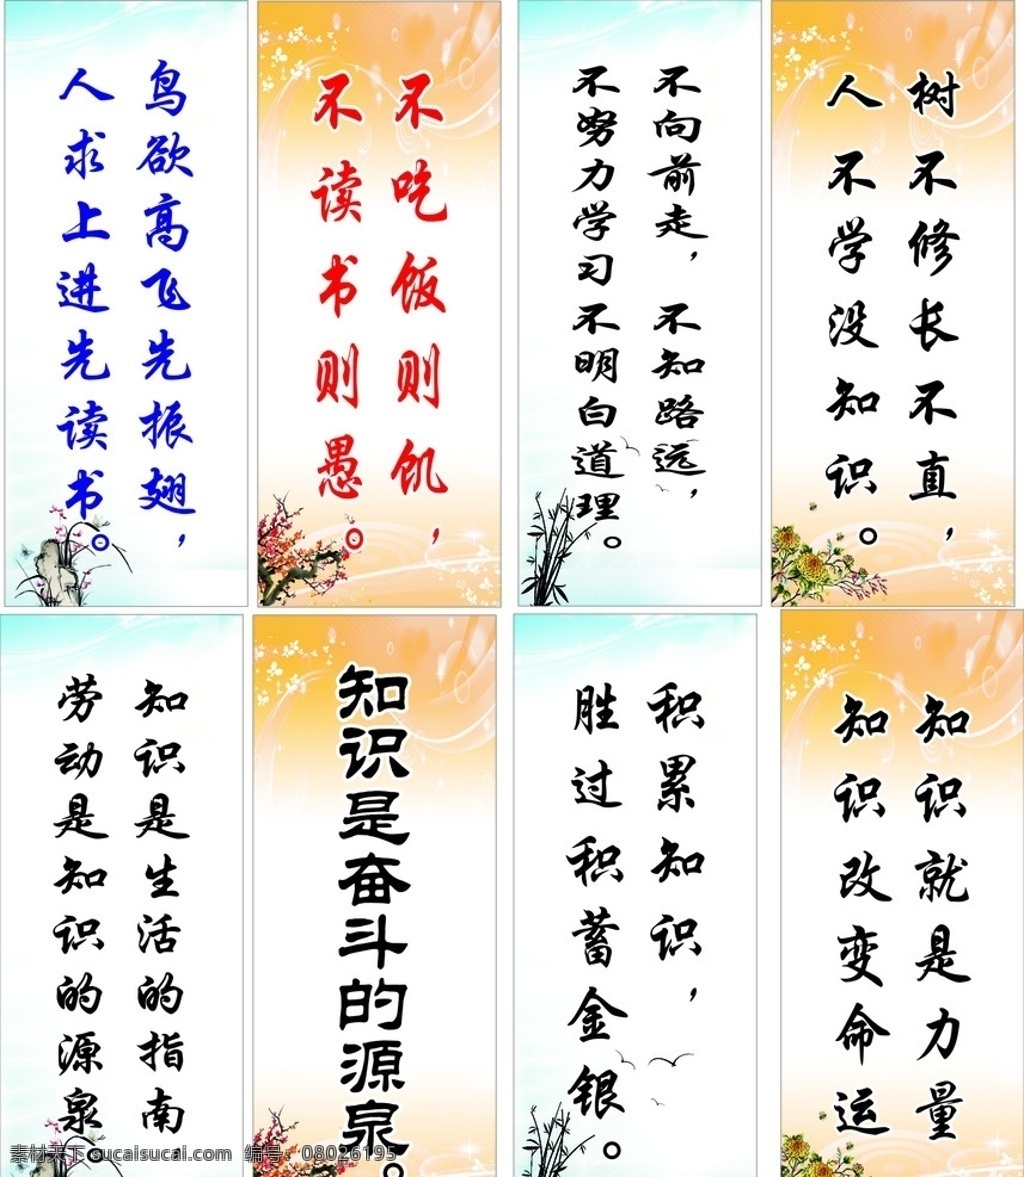 鸟欲高飞先振翅，
人求上进先读书。
不吃饭则饥，
不读书则愚。
不向前走，不知路远，
不努力学习不明白道理。
树不修长不直，
人不学没知识。
知识是生活的指南
劳动是知识的源泉。
知识是奋斗的源泉。
积累知识，
胜过积蓄金银。
知识就是力量
知识改变命运
素材天下 sucaisucai.com 编号：08026195